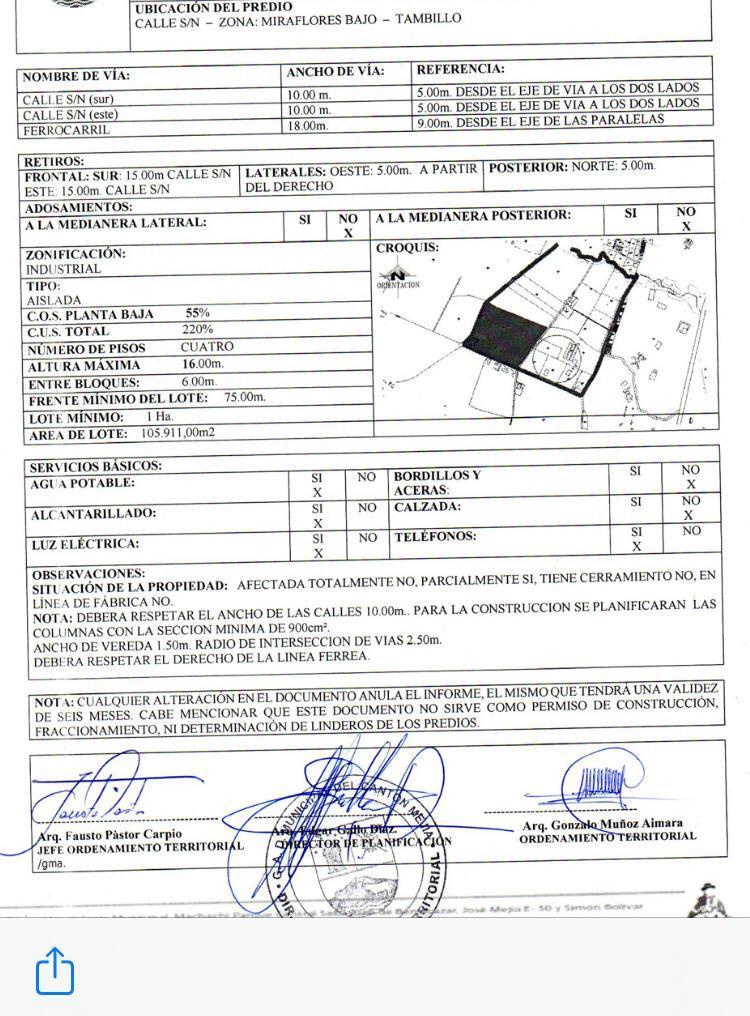 UBICACIÓN DEL PREDIO
CALLE S/N – ZONA: MIRAFLORES BAJO – TAMBILLO
NOMBRE DE VÍA: ANCHO DE VÍA: REFERENCIA:
CALLE S/N (sur) 10.00 m. 5.00m. DESDE EL EJE DE VIA A LOS DOS LADOS
CALLE S/N (este) 10.00 m. 5.00m. DESDE EL EJE DE VIA A LOS DOS LADOS
FERROCARRIL 18.00m. 9.00m. DESDE EL EJE DE LAS PARALELAS
RETIROS:
FRONTAL: SUR: 15.00m CALLE S/N LATERALES: OESTE: 5.00m. A PARTIR POSTERIOR: NORTE: 5.00m.
ESTE: 15.00m. CALLE S/N DEL DERECHO
ADOSAMIENTOS:
A LA MEDIANERA LATERAL: SI NO A LA MEDIANERA POSTERIOR: SI NO
X X
ZONIFICACIÓN: CROQUIS:
INDUSTRIAL N
TIPO: ORIENTACION
AISLADA
C.O.S. PLANTA BAJA 55%
C.U.S. TOTAL 220%
NÚMERO DE PISOS CUATRO
ALTURA MÁXIMA 16.00m.
ENTRE BLOQUES: 6.00m.
FRENTE MÍNIMO DEL LOTE: 75.00m.
LOTE MÍNIMO: 1 Ha.
AREA DE LOTE: 105.911,00m2
SERVICIOS BÁSICOS:
AGUA POTABLE: SI NO BORDILLOS Y SI NO
X ACERAS: X
ALCANTARILLADO: SI NO CALZADA: SI NO
X X
LUZ ELÉCTRICA: SI NO TELÉFONOS: SI NO
X X
OBSERVACIONES:
SITUACIÓN DE LA PROPIEDAD: AFECTADA TOTALMENTE NO, PARCIALMENTE SI, TIENE CERRAMIENTO NO, EN
LÍNEA DE FÁBRICA NO.
NOTA: DEBERA RESPETAR EL ANCHO DE LAS CALLES 10.00m.. PARA LA CONSTRUCCION SE PLANIFICARAN LAS
COLUMNAS CON LA SECCION MINIMA DE 900cm².
ANCHO DE VEREDA 1.50m. RADIO DE INTERSECCION DE VIAS 2.50m.
DEBERA RESPETAR EL DERECHO DE LA LINEA FERREA.
NOTA: CUALQUIER ALTERACIÓN EN EL DOCUMENTO ANULA EL INFORME, EL MISMO QUE TENDRÁ UNA VALIDEZ
DE SEIS MESES. CABE MENCIONAR QUE ESTE DOCUMENTO NO SIRVE COMO PERMISO DE CONSTRUCCIÓN,
FRACCIONAMIENTO, NI DETERMINACIÓN DE LINDEROS DE LOS PREDIOS.
Arq. Fausto Pàstor Carpio Arq. Edgar Gallo Díaz. Arq. Gonzalo Muñoz Aimara
JEFE ORDENAMIENTO TERRITORIAL DIRECTOR DE PLANIFICACIÓN ORDENAMIENTO TERRITORIAL
/gma.
José Mejía E- 50 y Simón Bolívar